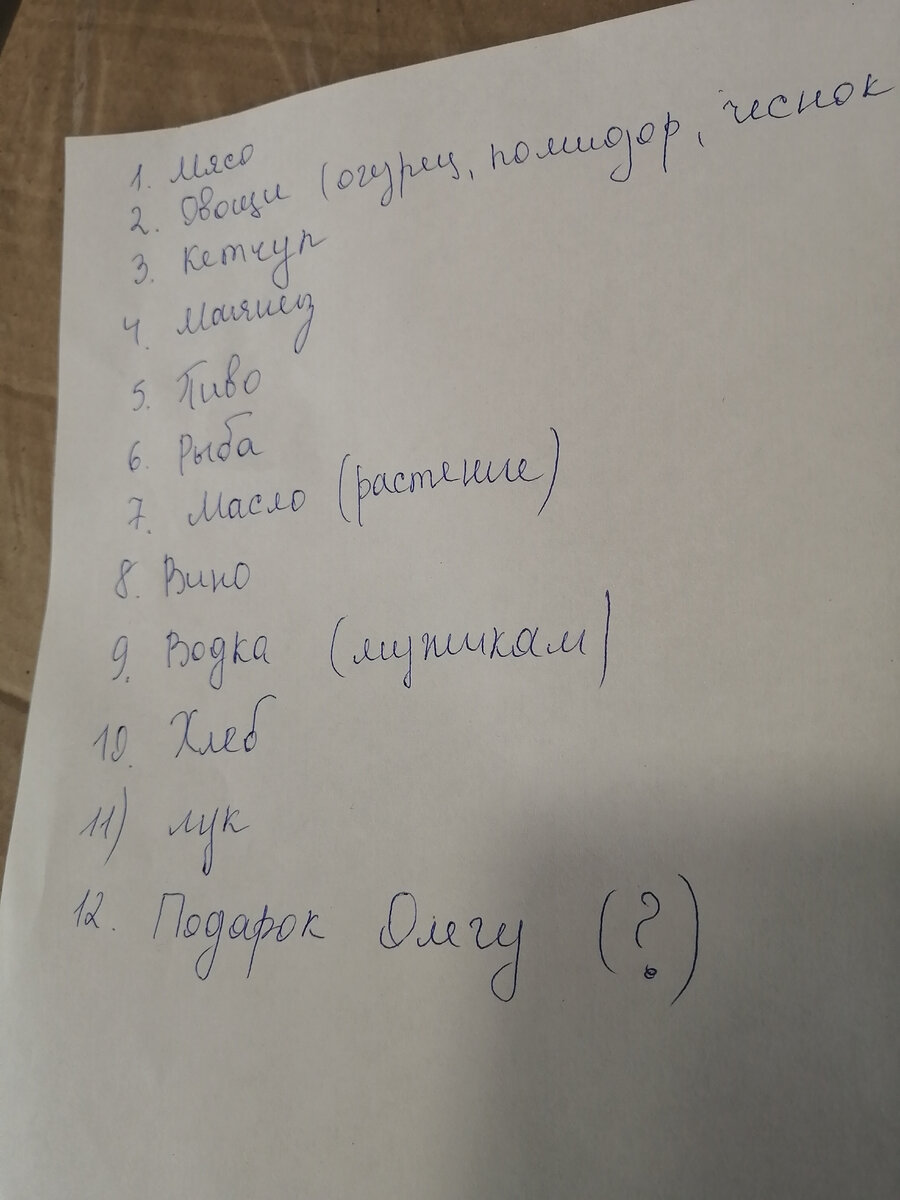 1. Мясо
2. Овощи (огурец, помидор, чеснок
3. Кетчуп
4. Маянез
5. Пиво
6. Рыба
7. Масло (растение)
8. Вино
9. Водка (мужикам)
10. Хлеб
11) лук
12. Подарок Олегу (?)